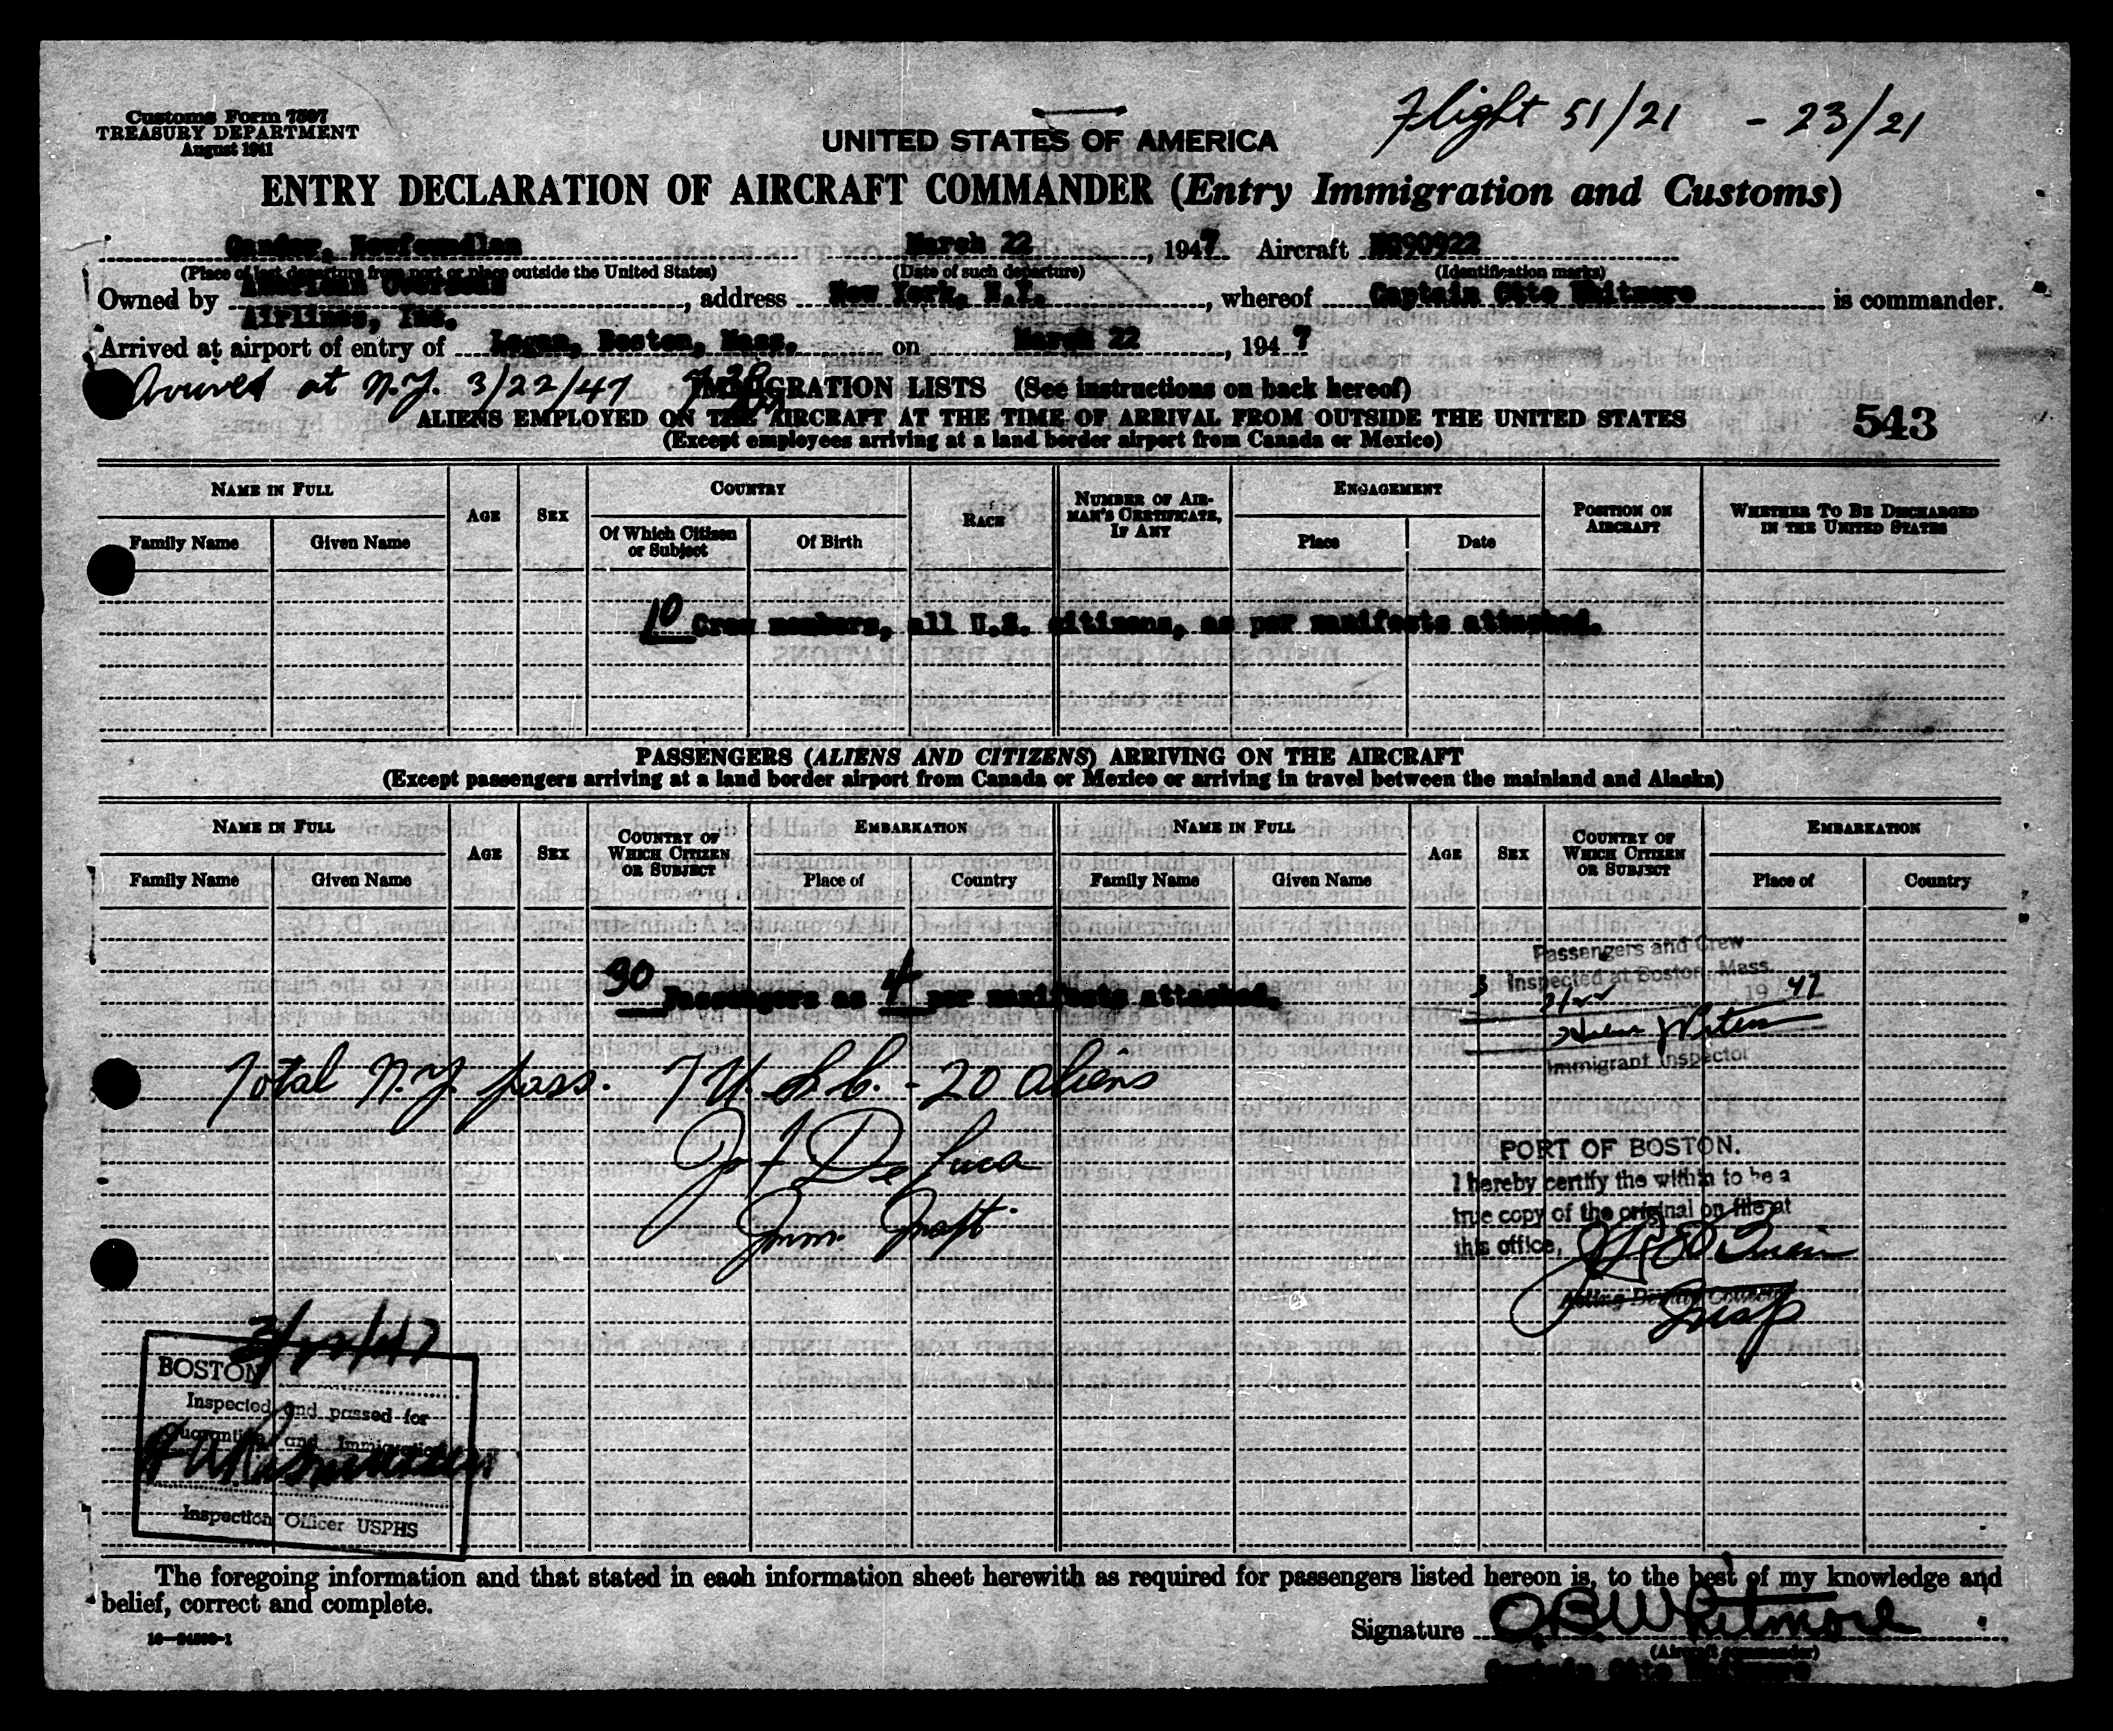 Customs Form 7507
TREASURY DEPARTMENT
August 1941
Flight 51/21 - 23/21
UNITED STATES OF AMERICA
ENTRY DECLARATION OF AIRCRAFT COMMANDER (Entry Immigration and Customs)
Gander, Newfoundlan March 22, 1947 Aircraft NC90922
(Place of last departure from port or place outside the United States) (Date of such departure) (Identification marks)
Owned by American Overseas Airlines, Inc., address New York, N.Y., whereof Captain Otto Whitmore is commander.
Arrived at airport of entry of Logan, Boston, Mass. on March 22, 1947
Arrived at N.Y. 3/22/47
IMMIGRATION LISTS (See instructions on back hereof)
ALIENS EMPLOYED ON THE AIRCRAFT AT THE TIME OF ARRIVAL FROM OUTSIDE THE UNITED STATES
543
(Except employees arriving at a land border airport from Canada or Mexico)
NAME IN FULL
Family Name Given Name
AGE
SEX
COUNTRY
Of Which Citizen or Subject Of Birth
RACE
NUMBER OF AIRMAN'S CERTIFICATE, IF ANY
ENGAGEMENT
Place Date
POSITION ON AIRCRAFT
WHETHER TO BE DISCHARGED IN THE UNITED STATES
10 Crew members, all U.S. citizens, as per manifests attached.
PASSENGERS (ALIENS AND CITIZENS) ARRIVING ON THE AIRCRAFT
(Except passengers arriving at a land border airport from Canada or Mexico or arriving in travel between the mainland and Alaska)
NAME IN FULL
Family Name Given Name
AGE
SEX
COUNTRY OF WHICH CITIZEN OR SUBJECT
EMBARKATION
Place of Country
NAME IN FULL
Family Name Given Name
AGE
SEX
COUNTRY OF WHICH CITIZEN OR SUBJECT
EMBARKATION
Place of Country
30 Passengers as 4 per manifests attached.
Passengers and Crew
Inspected at Boston, Mass.
3/22 1947
Immigrant Inspector
Total N.Y. pass. 7 U.S.C. - 20 aliens
De Luca
Imm. Inspt.
PORT OF BOSTON.
I hereby certify the within to be a
true copy of the original on file at
this office,
Acting Deputy Collector
Insp
3/22/47
BOSTON
Inspected and passed for
Quarantine and Immigration
Rasmussen
Inspection Officer USPHS
The foregoing information and that stated in each information sheet herewith as required for passengers listed hereon is, to the best of my knowledge and
belief, correct and complete.
Signature O B Whitmore
(Aircraft commander)
Captain Otto Whitmore